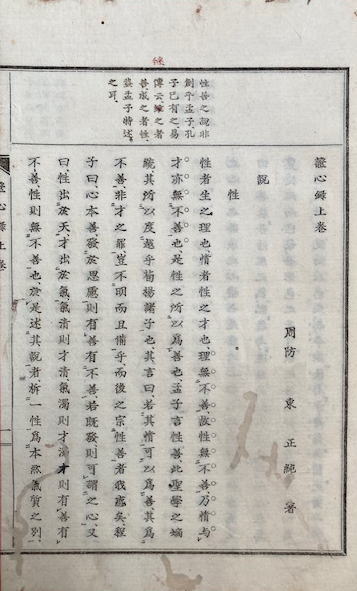 性善之説非
創乎孟子孔
子已有之易
傳云繼之者
善成之者性
葢孟子特述
之耳
證心録上卷
周防　東　正純　著
説
性
性者生之理也情者性之才也理無不善故性無不善乃情與
才亦無不善也是性之所以爲善也孟子言性善此聖學之嫡
統其所以度越乎荀揚諸子也其言曰若其情可以爲善其爲
不善非才之罪豈不明而且備乎而後之宗性善者我惑矣程
子曰心本善發於思慮則有善有不善若既發則可謂之心又
曰性出於天才出於氣氣清則才清氣濁則才濁才則有善有
不善性則無不善也於是述其説者析一性爲本然氣質之別
證心録上卷